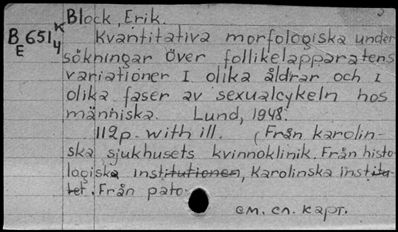 Block, Erik.
BE 651,K4 Kvantitativa morfologiska under
sökningar över follikelapparatens
variationer I olika åldrar och I
olika faser av sexualcykeln hos
människa. Lund, 1948.
112p. with ill. (Från karolin-
ska sjukhusets kvinnoklinik. Från histo
logiska institutionen, Karolinska insti tu-
tet. Från pato
см. сл. карт.